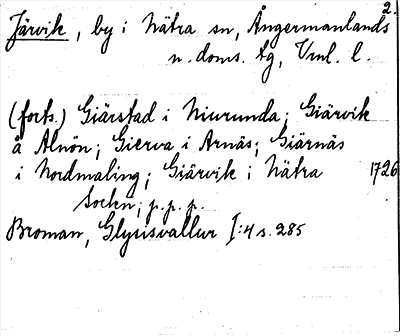 2.
Järvik, by i Nätra sn, Ångermanlands
n. doms. tg, Vnl. l.
(forts.) Giärstad i Niurunda; Giärvik
å Alnön; Gierva i Arnäs; Giärnäs
i Nordmaling; Giärvik i Nätra 1726
Socken; p. p. p.
Broman, Glysisvallur I:4 s. 285